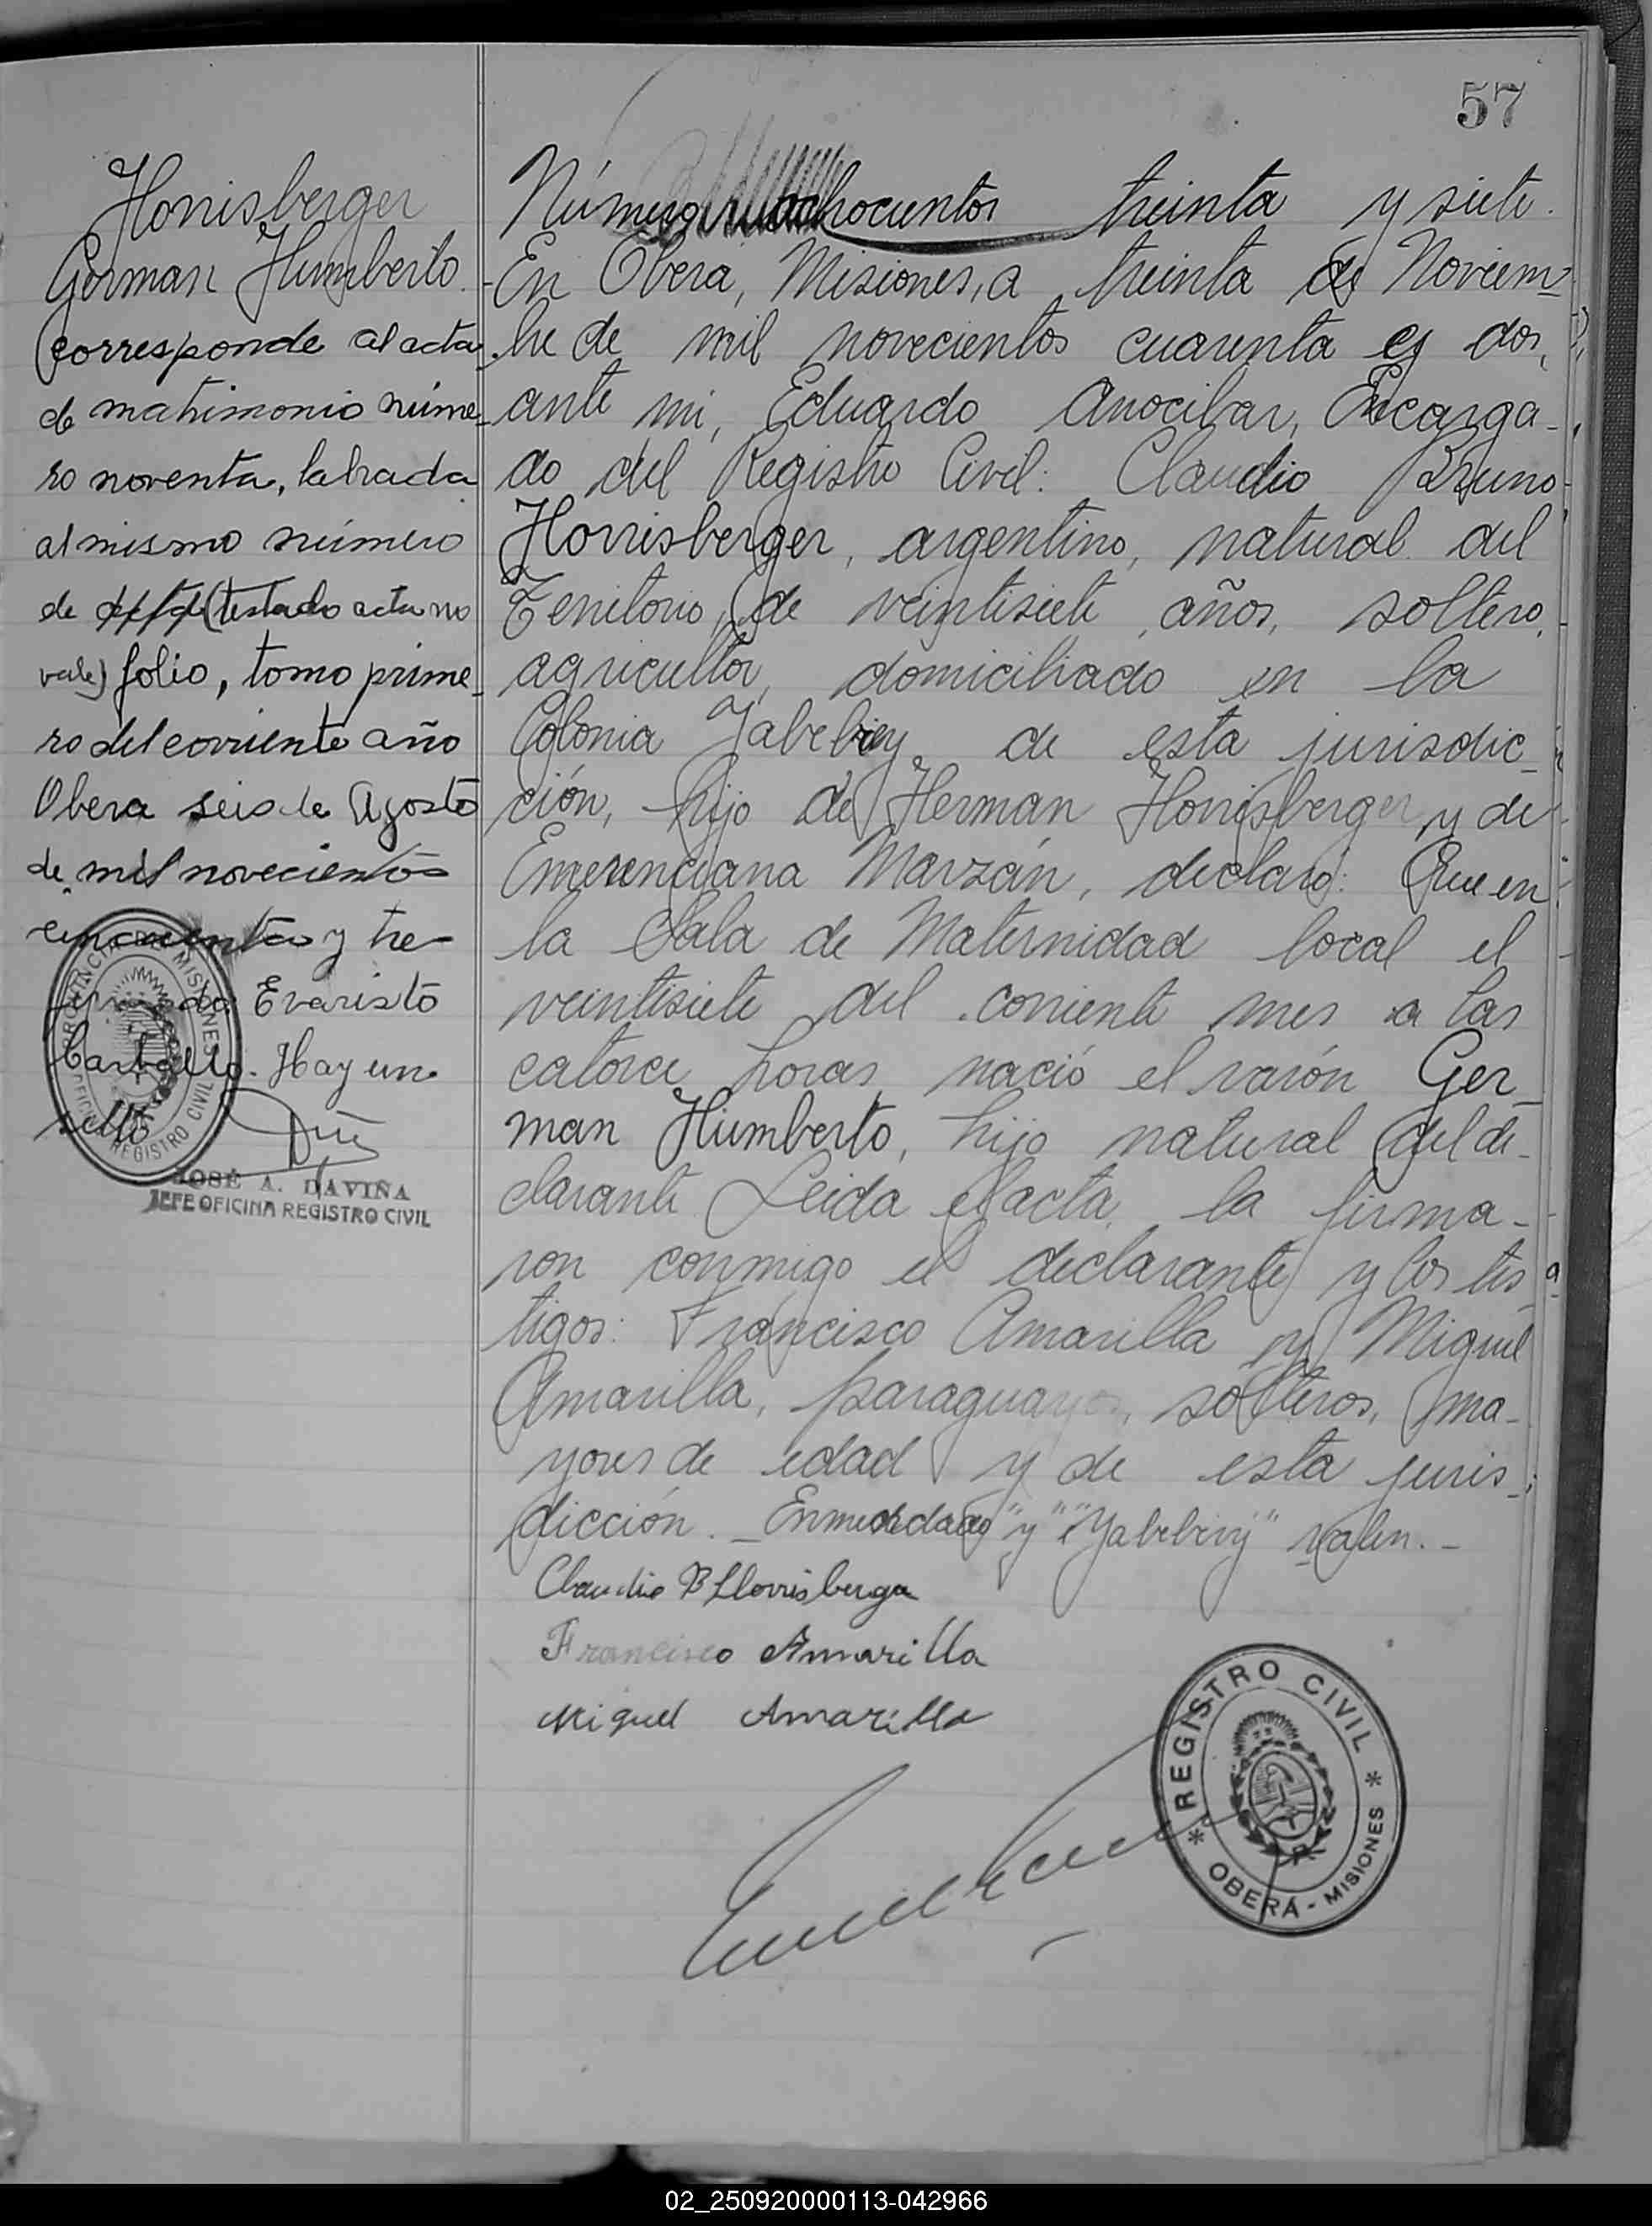 57
Horrisberger
German Humberto.
Corresponde al acta
de matrimonio núme-
ro noventa, labrada
al mismo número
de (testado acta no
vale) folio, tomo prime-
ro del corriente año
Obera seis de Agosto
de mil novecientos
cincuenta y tre
firmado: Evaristo
Carballo. Hay un
sello
PROVINCIA DE MISIONES
OFICINA REGISTRO CIVIL
JOSÉ A. DAVIÑA
JEFE OFICINA REGISTRO CIVIL
Número ochocientos treinta y siete.
En Obera, Misiones, a treinta de Noviem-
bre de mil novecientos cuarenta y dos,
ante mi, Eduardo Anocibar, Encarga-
do del Registro Civil: Claudio Bruno
Horrisberger, argentino, natural del
Territorio, de veintisiete años, soltero,
agricultor, domiciliado en la
Colonia Yabebiry, de esta jurisdic-
ción, hijo de Herman Horrisberger y de
Emerenciana Marzán, declaró: Que en
la Sala de Maternidad local el
veintisiete del corriente mes a las
catorce horas nació el varón Ger-
man Humberto, hijo natural del de-
clarante Leida el acta, la firma-
ron conmigo el declarante y los tes-
tigos: Francisco Amarilla y Miguel
Amarilla, paraguayos, solteros, ma-
yores de edad y de esta juris-
dicción._ Enmendado "y" "Yabebiry" valen._
Claudio B Horrisberger
Francisco Amarilla
Miguel Amarilla
* REGISTRO CIVIL *
OBERÁ - MISIONES
02_250920000113-042966